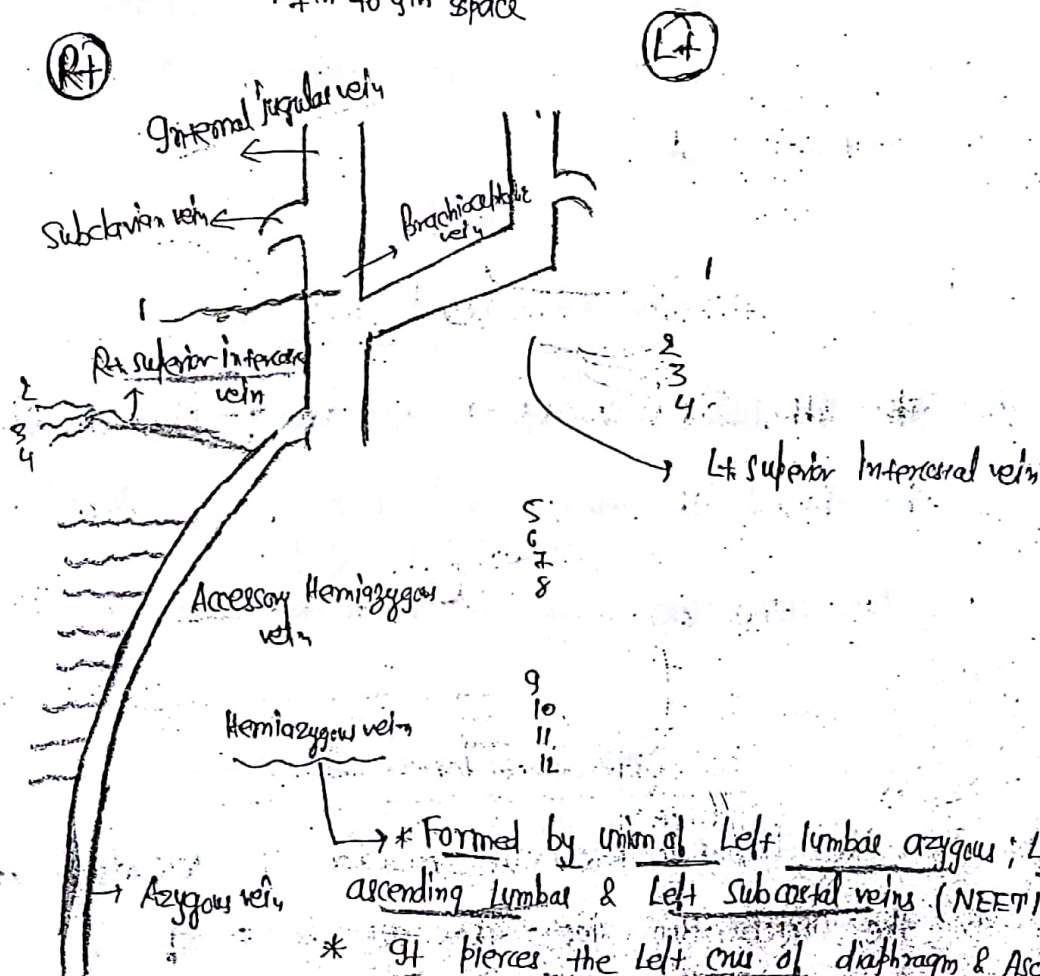 to 9th space
Rt
Lt
Internal jugular vein
Subclavian vein
Brachiocephalic
vein
1
1
Rt superior intercos
vein
2
3
4
2
3
4
Lt superior Intercostal vein
5
6
7
8
Accessory Hemiazygous
vein
9
10
11
12
Hemiazygous vein
* Formed by union of Left lumbar azygous ; L
Azygous vein
ascending lumbar & Left subcostal veins (NEET
* It pierces the Left crus of diaphragm & Asc